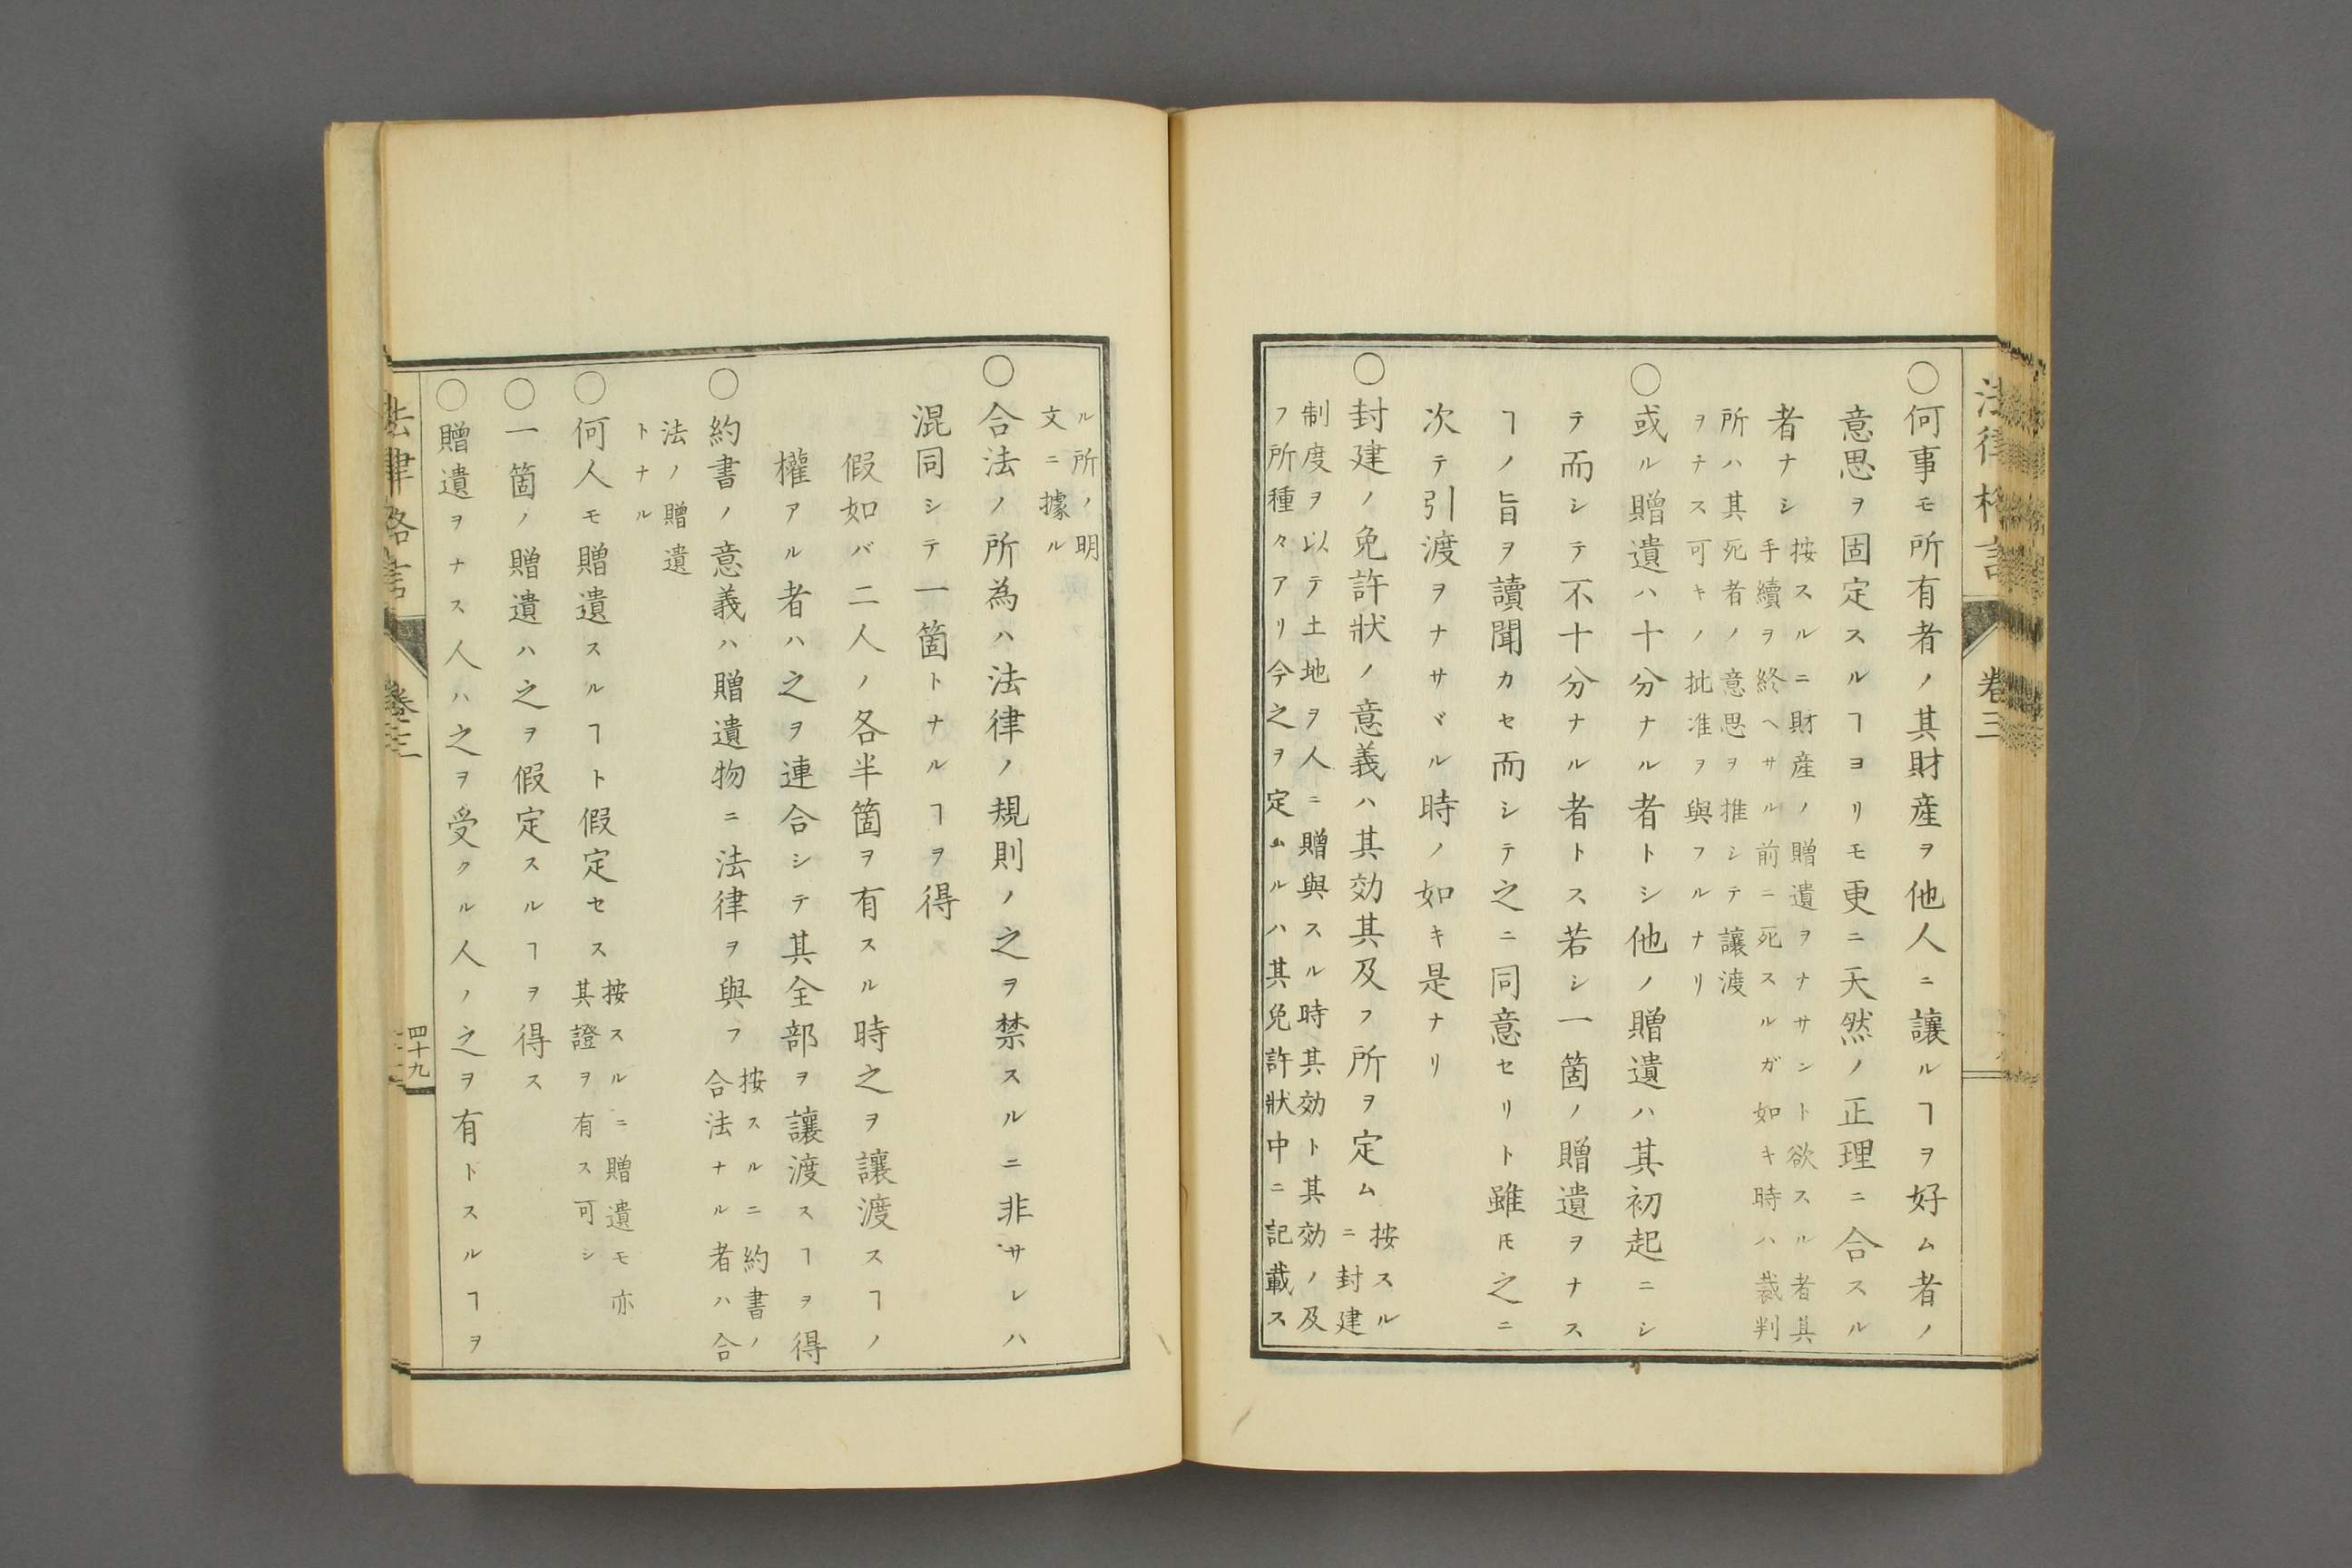 〇何事モ所有者ノ其財産ヲ他人ニ讓ルヿヲ好ム者ノ
意思ヲ固定スルヿヨリモ更ニ天然ノ正理ニ合スル
者ナシ
按スルニ財産ノ贈遺ヲナサント欲スル者其
手續ヲ終ヘサル前ニ死スルガ如キ時ハ裁判
所ハ其死者ノ意思ヲ推シテ讓渡
ヲナス可キノ批准ヲ與フルナリ
〇或ル贈遺ハ十分ナル者トシ他ノ贈遺ハ其初起ニシ
テ而シテ不十分ナル者トス若シ一箇ノ贈遺ヲナス
ヿノ旨ヲ讀聞カセ而シテ之ニ同意セリト雖𪜈之ニ
次テ引渡ヲナサヾル時ノ如キ是ナリ
〇封建ノ免許狀ノ意義ハ其効其及フ所ヲ定ム
按スル
ニ封建
制度ヲ以テ土地ヲ人ニ贈與スル時其効ト其効ノ及
フ所種々アリ今之ヲ定ムルハ其免許狀中ニ記載ス
ル所ノ明
文ニ據ル
〇合法ノ所為ハ法律ノ規則ノ之ヲ禁スルニ非サレハ
混同シテ一箇トナルヿヲ得
假如バ二人ノ各半箇ヲ有スル時之ヲ讓渡スヿノ
權アル者ハ之ヲ連合シテ其全部ヲ讓渡スヿヲ得
〇約書ノ意義ハ贈遺物ニ法律ヲ與フ
按スルニ約書ノ
合法ナル者ハ合
法ノ贈遺
トナル
〇何人モ贈遺スルヿト假定セス
按スルニ贈遺モ亦
其證ヲ有ス可シ
〇一箇ノ贈遺ハ之ヲ假定スルヿヲ得ス
〇贈遺ヲナス人ハ之ヲ受クル人ノ之ヲ有トスルヿヲ
法律格言
卷三
四十九